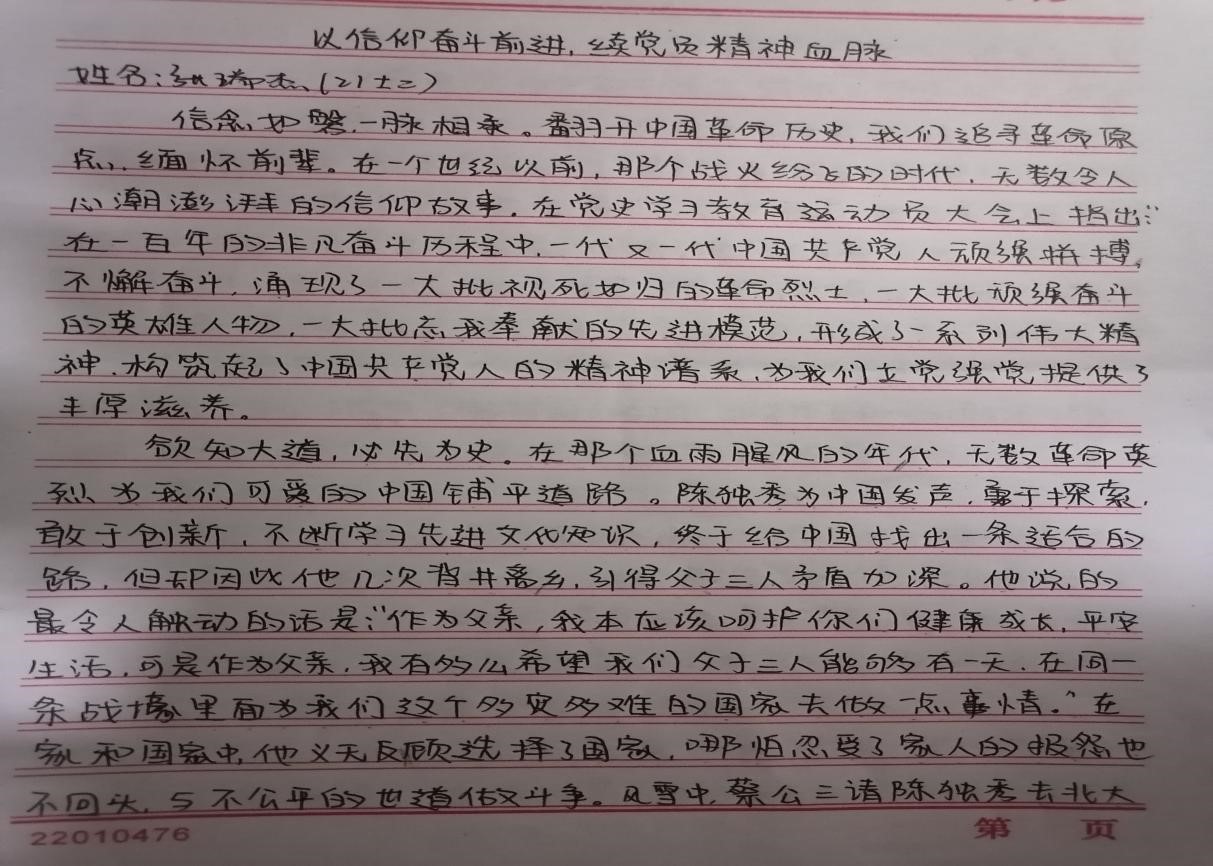 以信仰奋斗前进,续党员精神血脉
姓名:瑞杰(21士二)
信念如磐,一脉相承。翻开中国革命历史,我们追寻革命原
点,缅怀前辈。在一个世纪以前,那个战火纷飞的时代,无数令人
心潮澎湃的信仰故事,在党史学习教育运动员大会上指出:“
在一百年的非凡奋斗历程中,一代又一代中国共产党人顽强拼搏,
不懈奋斗,涌现了一大批视死如归的革命烈士,一大批顽强奋斗
的英雄人物,一大批忘我奉献的先进模范,形成了一系列伟大精
神,构筑起了中国共产党人的精神谱系,为我们立党强党提供了
丰厚滋养。
欲知大道,必先为史。在那个血雨腥风的年代,无数革命英
烈为我们可爱的中国铺平道路。陈独秀为中国发声,勇于探索,
敢于创新,不断学习先进文化知识,终于给中国找出一条适合的
路,但却因此他几次背井离乡,引得父子三人矛盾加深。他说的
最令人触动的话是:“作为父亲,我本应该呵护你们健康成长,平安
生活,可是作为父亲,我有多么希望我们父子三人能够有一天,在同一
条战壕里面为我们这个多灾多难的国家去做一点事情。”在
家和国家中,他义无反顾选择了国家,哪怕忍受了家人的报怨也
不回头,与不公平的世道做斗争。风雪中,蔡公三请陈独秀去北大
22010476
第 页